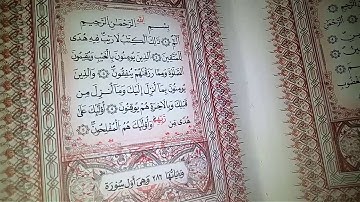 بِسْمِ اللَّهِ الرَّحْمَٰنِ الرَّحِيمِ
الٓمٓ ۝ ذَٰلِكَ الْكِتَٰبُ لَا رَيْبَ فِيهِ هُدًى
لِّلْمُتَّقِينَ ۝ الَّذِينَ يُؤْمِنُونَ بِالْغَيْبِ وَيُقِيمُونَ
الصَّلَوٰةَ وَمِمَّا رَزَقْنَٰهُمْ يُنفِقُونَ ۝ وَالَّذِينَ
يُؤْمِنُونَ بِمَا أُنزِلَ إِلَيْكَ وَمَا أُنزِلَ مِن
قَبْلِكَ وَبِالْآخِرَةِ هُمْ يُوقِنُونَ ۝ أُولَٰئِكَ عَلَىٰ
هُدًى مِّن رَّبِّهِمْ وَأُولَٰئِكَ هُمُ الْمُفْلِحُونَ ۝
٢٨٦ وَهِيَ أَوَّلُ سُورَةٍ